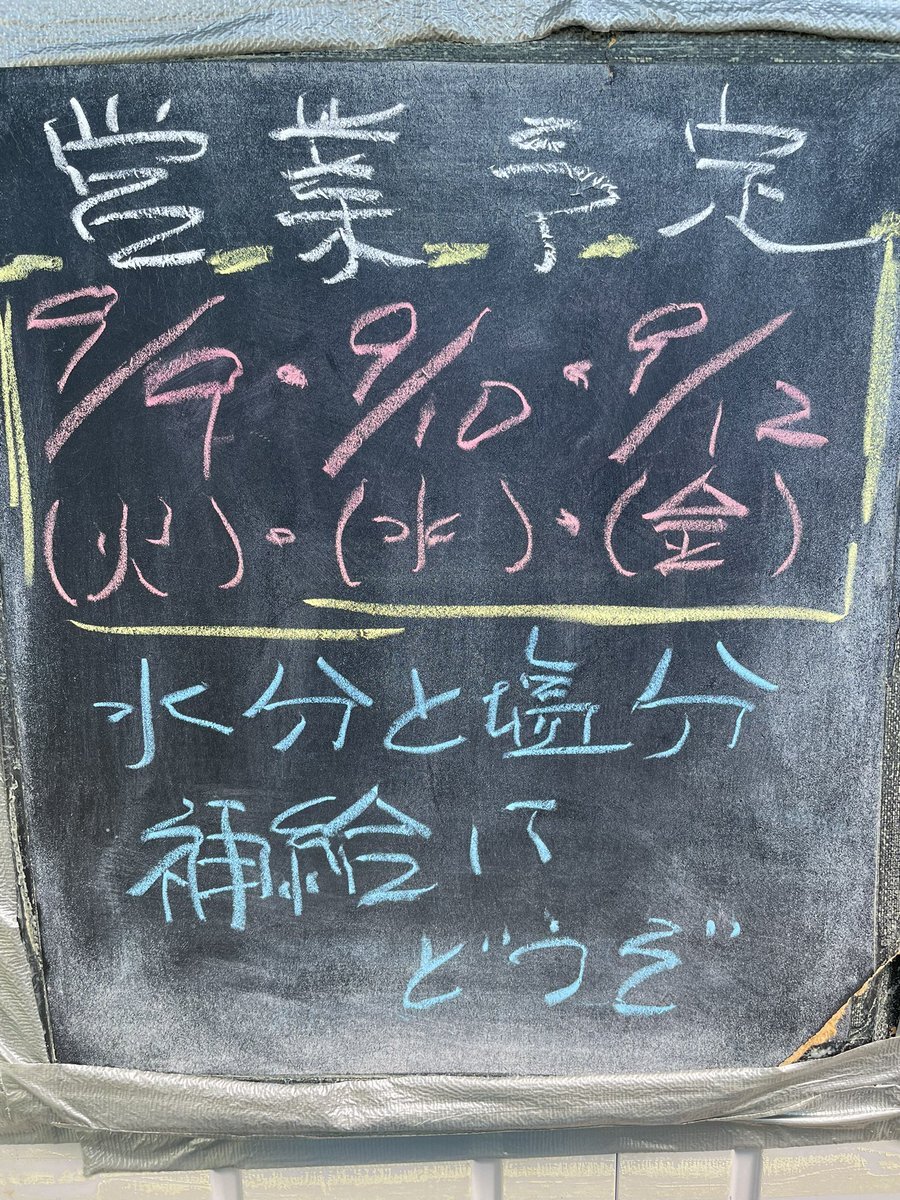 営業予定
9/9・9/10・9/12
(火)・(水)・(金)
水分と塩分
補給に
どうぞ